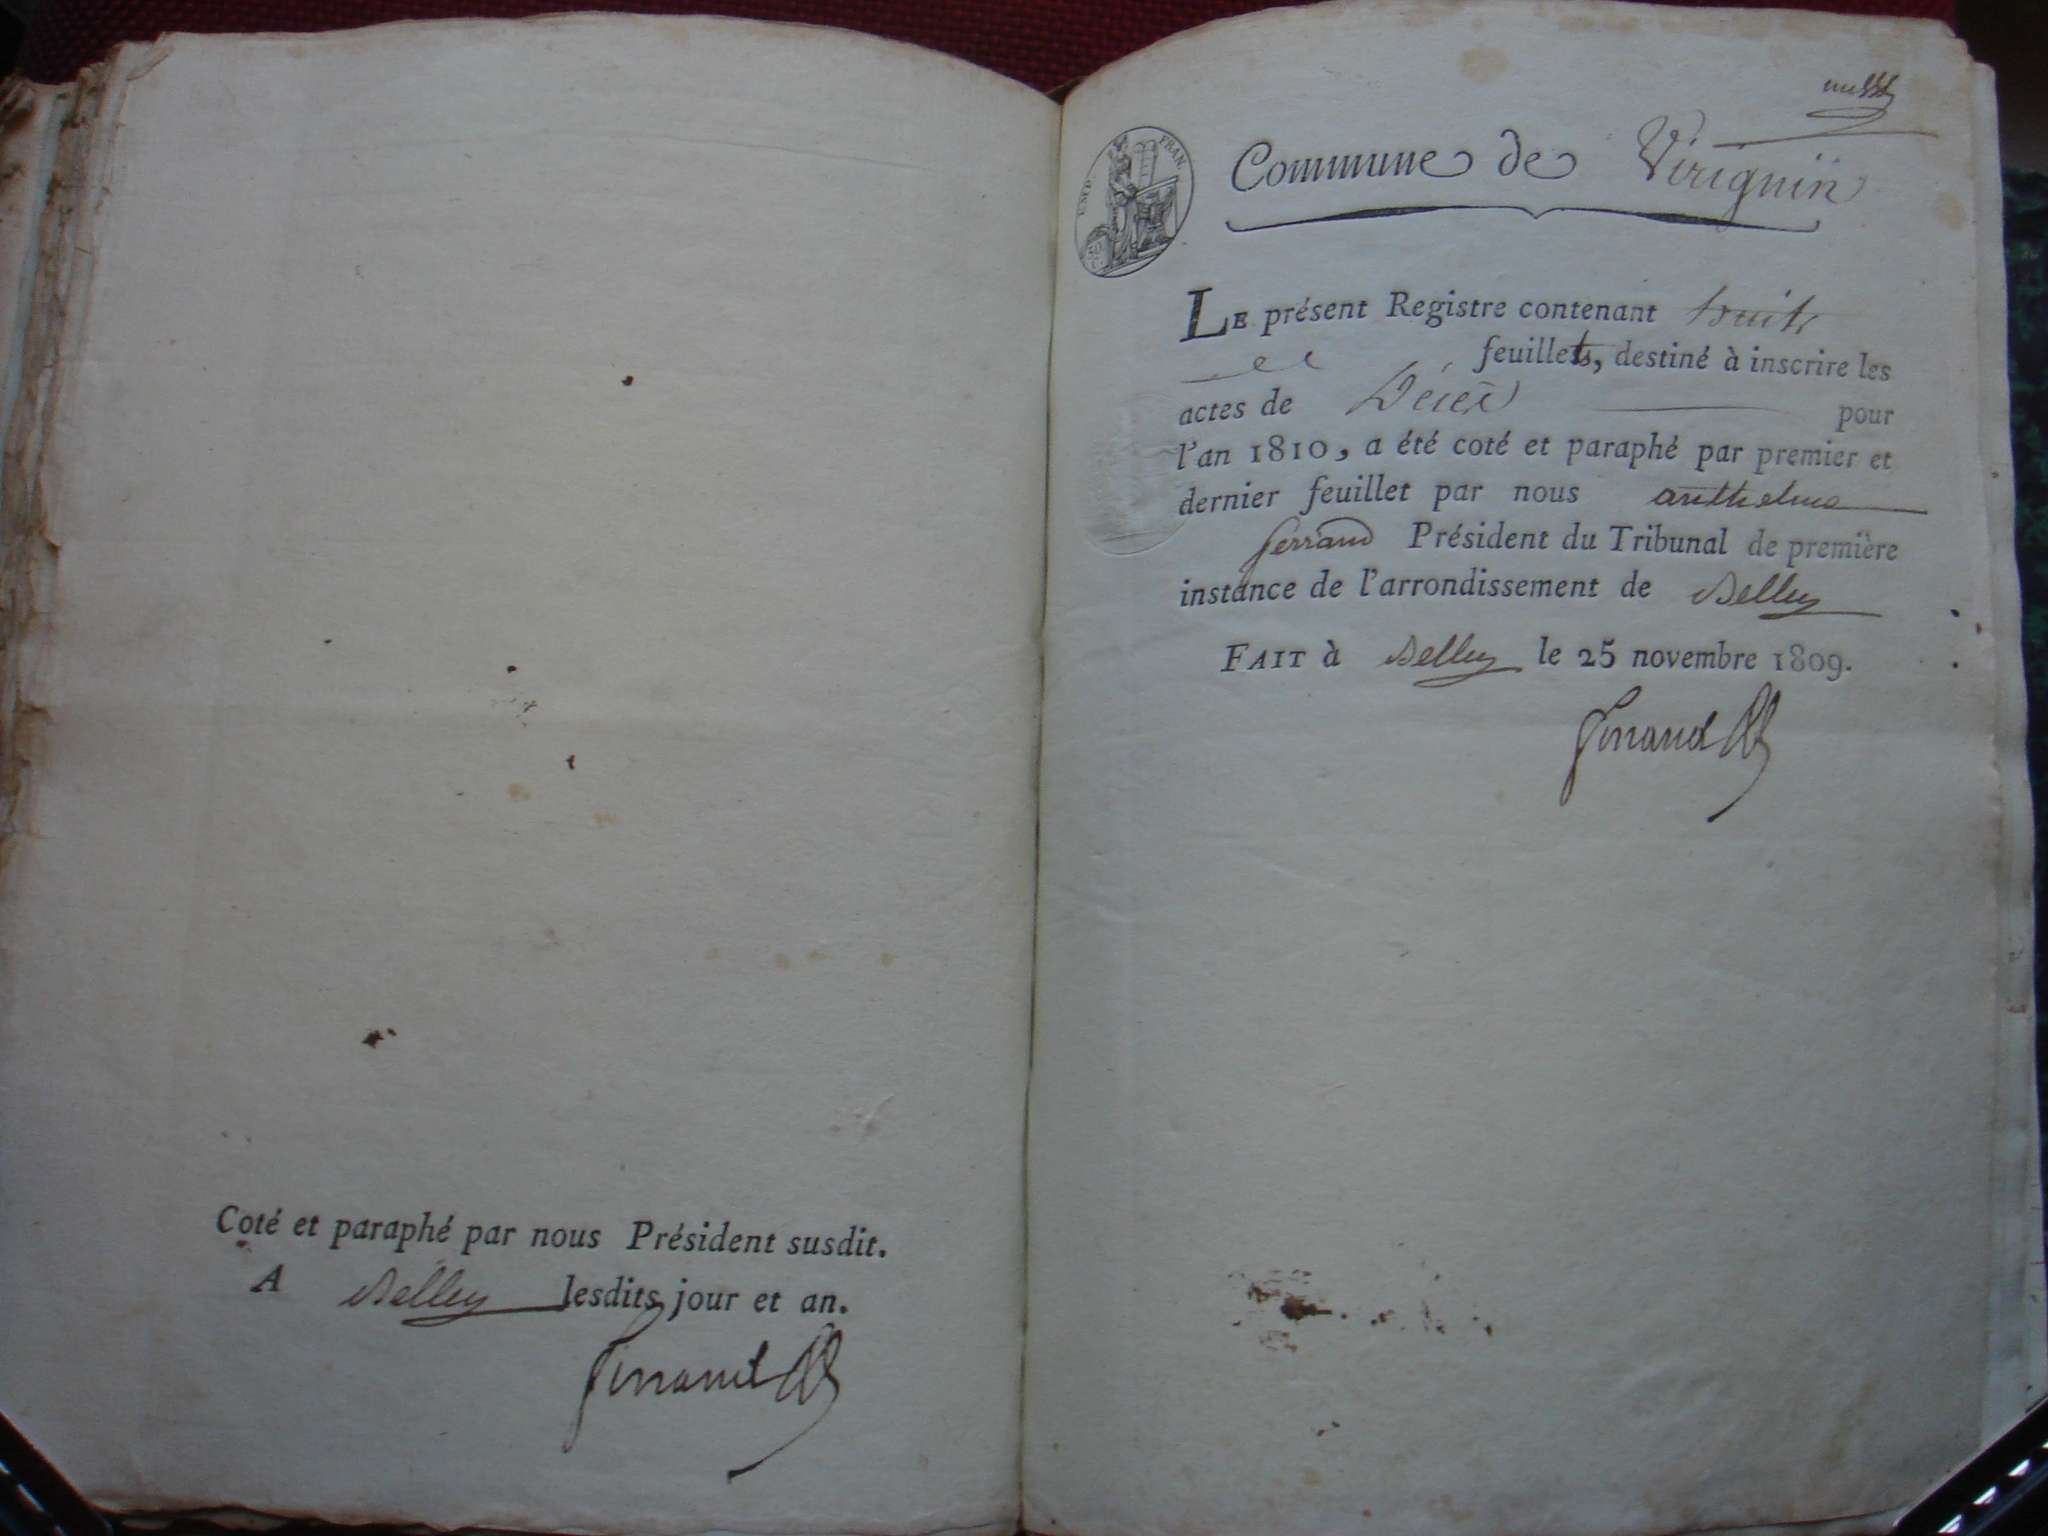 Coté et paraphé par nous Président susdit.
A Belley lesdits jour et an.
Ferrand
EMP. FRAN.
Commune de Virignin
Le présent Registre contenant huit
feuillets, destiné à inscrire les
actes de Décès pour
l'an 1810, a été coté et paraphé par premier et
dernier feuillet par nous anthelme
ferrand Président du Tribunal de première
instance de l'arrondissement de Belley
Fait à Belley le 25 novembre 1809.
Ferrand